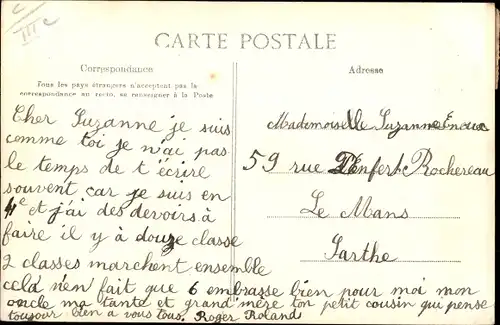 C
III C
CARTE POSTALE
Correspondance
Tous les pays étrangers n'acceptent pas la
correspondance au recto, se renseigner à la Poste
Cher Suzanne je suis
comme toi je n'ai pas
le temps de t'écrire
souvent car je suis en
4e et j'ai des devoirs à
faire il y à douze classe
2 classes marchent ensemble
cela n'en fait que 6 embrasse bien pour moi mon
oncle ma tante et grand'mère ton petit cousin qui pense
toujour bien a vous tous. Roger Roland
Adresse
Mademoiselle Suzanne
59 rue Denfert Rochereau
Le Mans
Sarthe